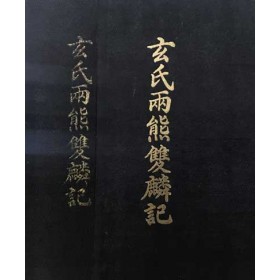 玄氏兩熊雙麟記
玄氏兩熊雙麟記